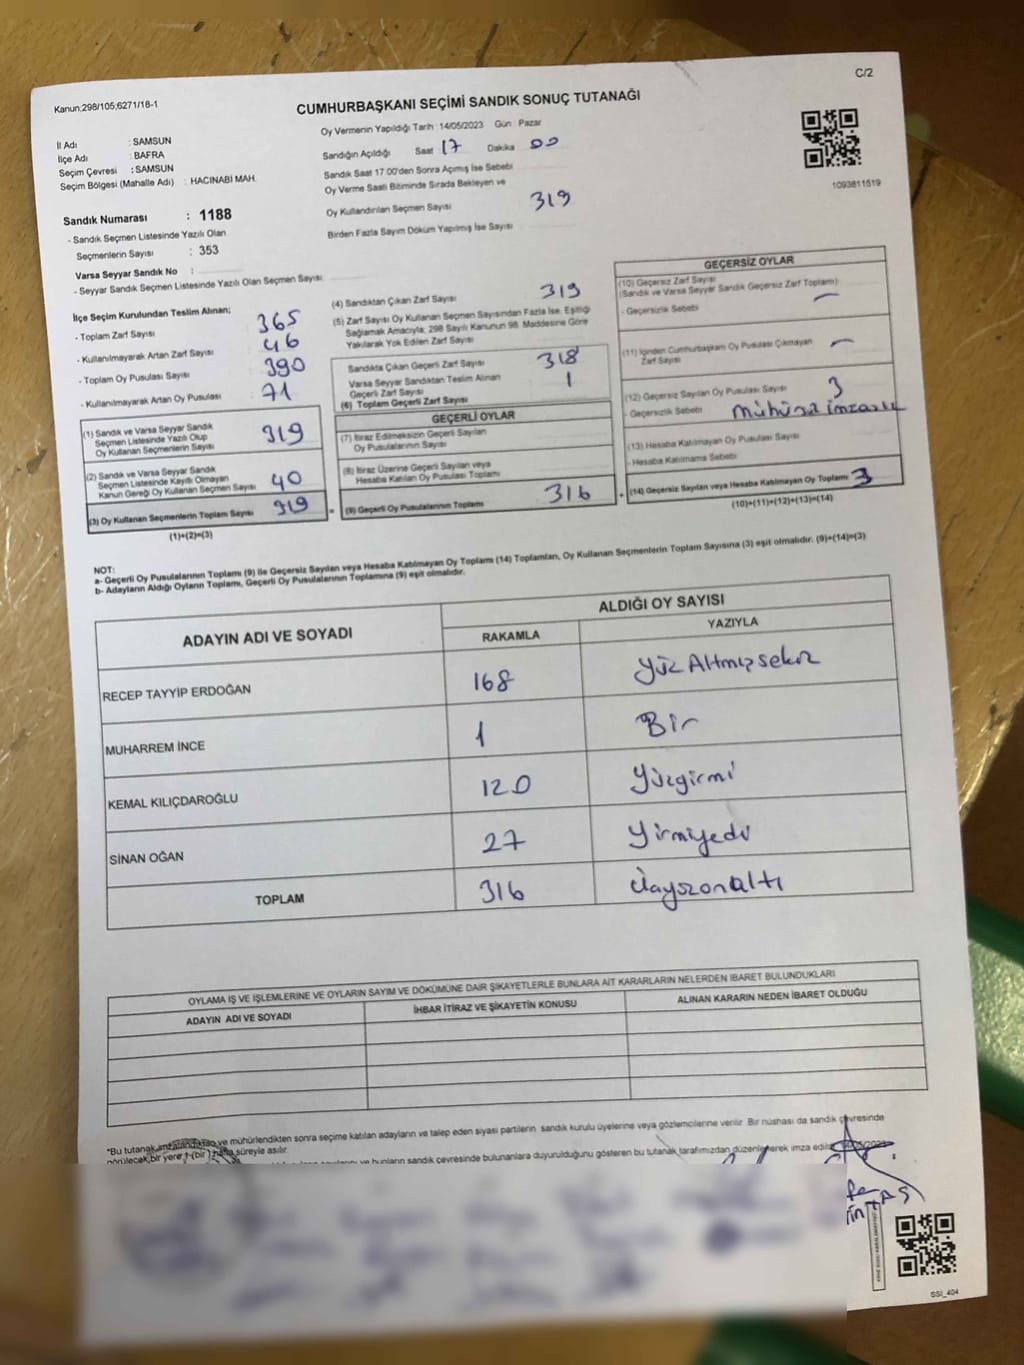 C/2
Kanun:298/105;6271/18-1
CUMHURBAŞKANI SEÇİMİ SANDIK SONUÇ TUTANAĞI
İl Adı : SAMSUN
İlçe Adı : BAFRA
Seçim Çevresi : SAMSUN
Seçim Bölgesi (Mahalle Adı) : HACINABİ MAH.
Oy Vermenin Yapıldığı Tarih :14/05/2023 Gün : Pazar
Sandığın Açıldığı Saat 17 Dakika 00
Sandık Saat 17.00'den Sonra Açımış İse Sebebi
Oy Verme Saati Bitiminde Sırada Bekleyen ve
Oy Kullandırılan Seçmen Sayısı 319
Birden Fazla Sayım Döküm Yapılmış İse Sayısı
1093811519
Sandık Numarası : 1188
- Sandık Seçmen Listesinde Yazılı Olan
Seçmenlerin Sayısı : 353
Varsa Seyyar Sandık No :
- Seyyar Sandık Seçmen Listesinde Yazılı Olan Seçmen Sayısı:
İlçe Seçim Kurulundan Teslim Alınan;
- Toplam Zarf Sayısı 365
- Kullanılmayarak Artan Zarf Sayısı 46
- Toplam Oy Pusulası Sayısı 390
- Kullanılmayarak Artan Oy Pusulası 71
(1) Sandık ve Varsa Seyyar Sandık
Seçmen Listesinde Yazılı Olup
Oy Kullanan Seçmenlerin Sayısı 319
(2) Sandık ve Varsa Seyyar Sandık
Seçmen Listesinde Kayıtlı Olmayan
Kanun Gereği Oy Kullanan Seçmen Sayısı 40
(3) Oy Kullanan Seçmenlerin Toplam Sayısı 319
(1)+(2)=(3)
(4) Sandıktan Çıkan Zarf Sayısı 319
(5) Zarf Sayısı Oy Kullanan Seçmen Sayısından Fazla İse, Eşitliği
Sağlamak Amacıyla; 298 Sayılı Kanunun 98. Maddesine Göre
Yakılarak Yok Edilen Zarf Sayısı
Sandıkta Çıkan Geçerli Zarf Sayısı 318
Varsa Seyyar Sandıktan Teslim Alınan
Geçerli Zarf Sayısı 1
(6) Toplam Geçerli Zarf Sayısı
GEÇERLİ OYLAR
(7) İtiraz Edilmeksizin Geçerli Sayılan
Oy Pusulalarının Sayısı
(8) İtiraz Üzerine Geçerli Sayılan veya
Hesaba Katılan Oy Pusulası Toplamı
= (9) Geçerli Oy Pusulalarının Toplamı 316
GEÇERSİZ OYLAR
(10) Geçersiz Zarf Sayısı
(Sandık ve Varsa Seyyar Sandık Geçersiz Zarf Toplamı)
- Geçersizlik Sebebi
(11) İçinden Cumhurbaşkanı Oy Pusulası Çıkmayan
Zarf Sayısı
(12) Geçersiz Sayılan Oy Pusulası Sayısı 3
- Geçersizlik Sebebi
(13) Hesaba Katılmayan Oy Pusulası Sayısı
- Hesaba Katılmama Sebebi
+ (14) Geçersiz Sayılan veya Hesaba Katılmayan Oy Toplamı 3
(10)+(11)+(12)+(13)=(14)
NOT:
a- Geçerli Oy Pusulalarının Toplamı (9) ile Geçersiz Sayılan veya Hesaba Katılmayan Oy Toplamı (14) Toplamları, Oy Kullanan Seçmenlerin Toplam Sayısına (3) eşit olmalıdır. (9)+(14)=(3)
b- Adayların Aldığı Oyların Toplamı, Geçerli Oy Pusulalarının Toplamına (9) eşit olmalıdır.
ADAYIN ADI VE SOYADI ALDIĞI OY SAYISI
RAKAMLA YAZIYLA
RECEP TAYYİP ERDOĞAN 168 Yüz Altmışsekiz
MUHARREM İNCE 1 Bir
KEMAL KILIÇDAROĞLU 120 Yüzgirmi
SİNAN OĞAN 27 Yirmiyedi
TOPLAM 316 Üayszonaltı
OYLAMA İŞ VE İŞLEMLERİNE VE OYLARIN SAYIM VE DÖKÜMÜNE DAİR ŞİKAYETLERLE BUNLARA AİT KARARLARIN NELERDEN İBARET BULUNDUKLARI
ADAYIN ADI VE SOYADI İHBAR İTİRAZ VE ŞİKAYETİN KONUSU ALINAN KARARIN NEDEN İBARET OLDUĞU
*Bu tutanak imzalandıktan ve mühürlendikten sonra seçime katılan adayların ve talep eden siyasi partilerin sandık kurulu üyelerine veya gözlemcilerine verilir. Bir nüshası da sandık çevresinde
görülecek bir yere 1 (bir) hafta süreyle asılır.
ve bunların sandık çevresinde bulunanlara duyurulduğunu gösteren bu tutanak tarafımızdan düzenlenerek imza
SSI_404